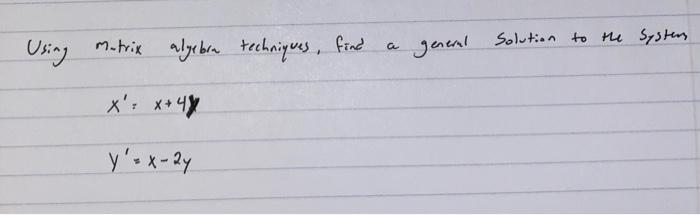 Using matrix algebra techniques, find a general Solution to the System
x' = x+4y
y' = x-2y